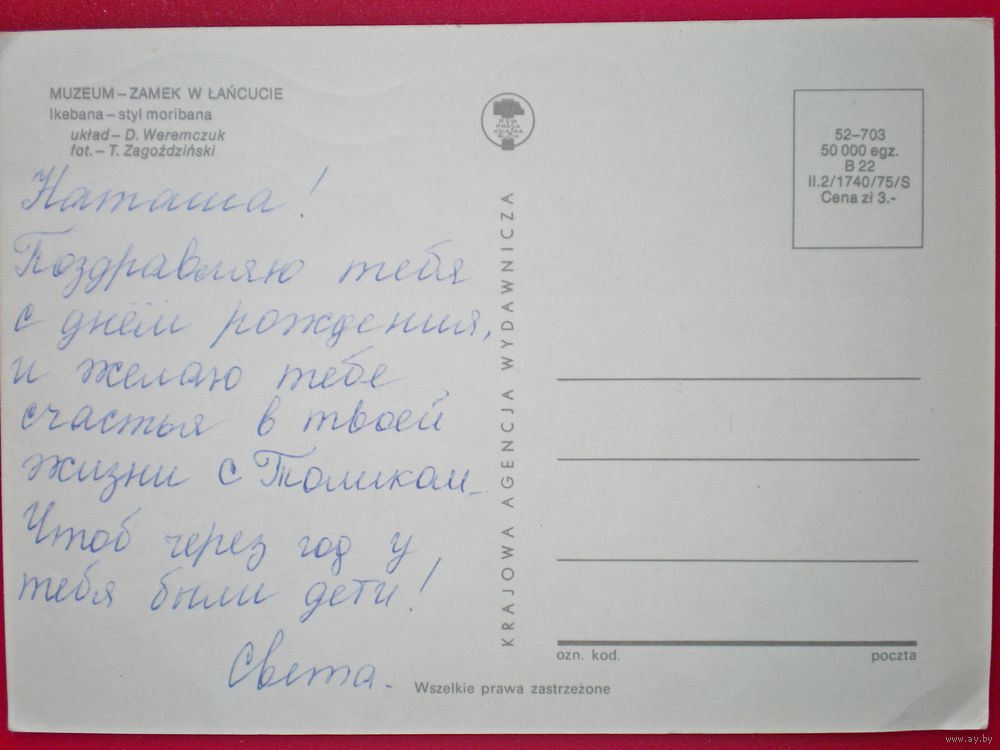 MUZEUM – ZAMEK W ŁAŃCUCIE
Ikebana – styl moribana
układ – D. Weremczuk
fot. – T. Zagoździński
Наташа!
Поздравляю тебя
с днём рождения,
и желаю тебе
счастья в твоей
жизни с Толиком.
Чтоб через год у
тебя были дети!
Света.
RSW
PRASA
KSIĄŻKA
RUCH
KRAJOWA AGENCJA WYDAWNICZA
52–703
50 000 egz.
B 22
II.2/1740/75/S
Cena zł 3.-
ozn. kod.
poczta
Wszelkie prawa zastrzeżone
www.ay.by